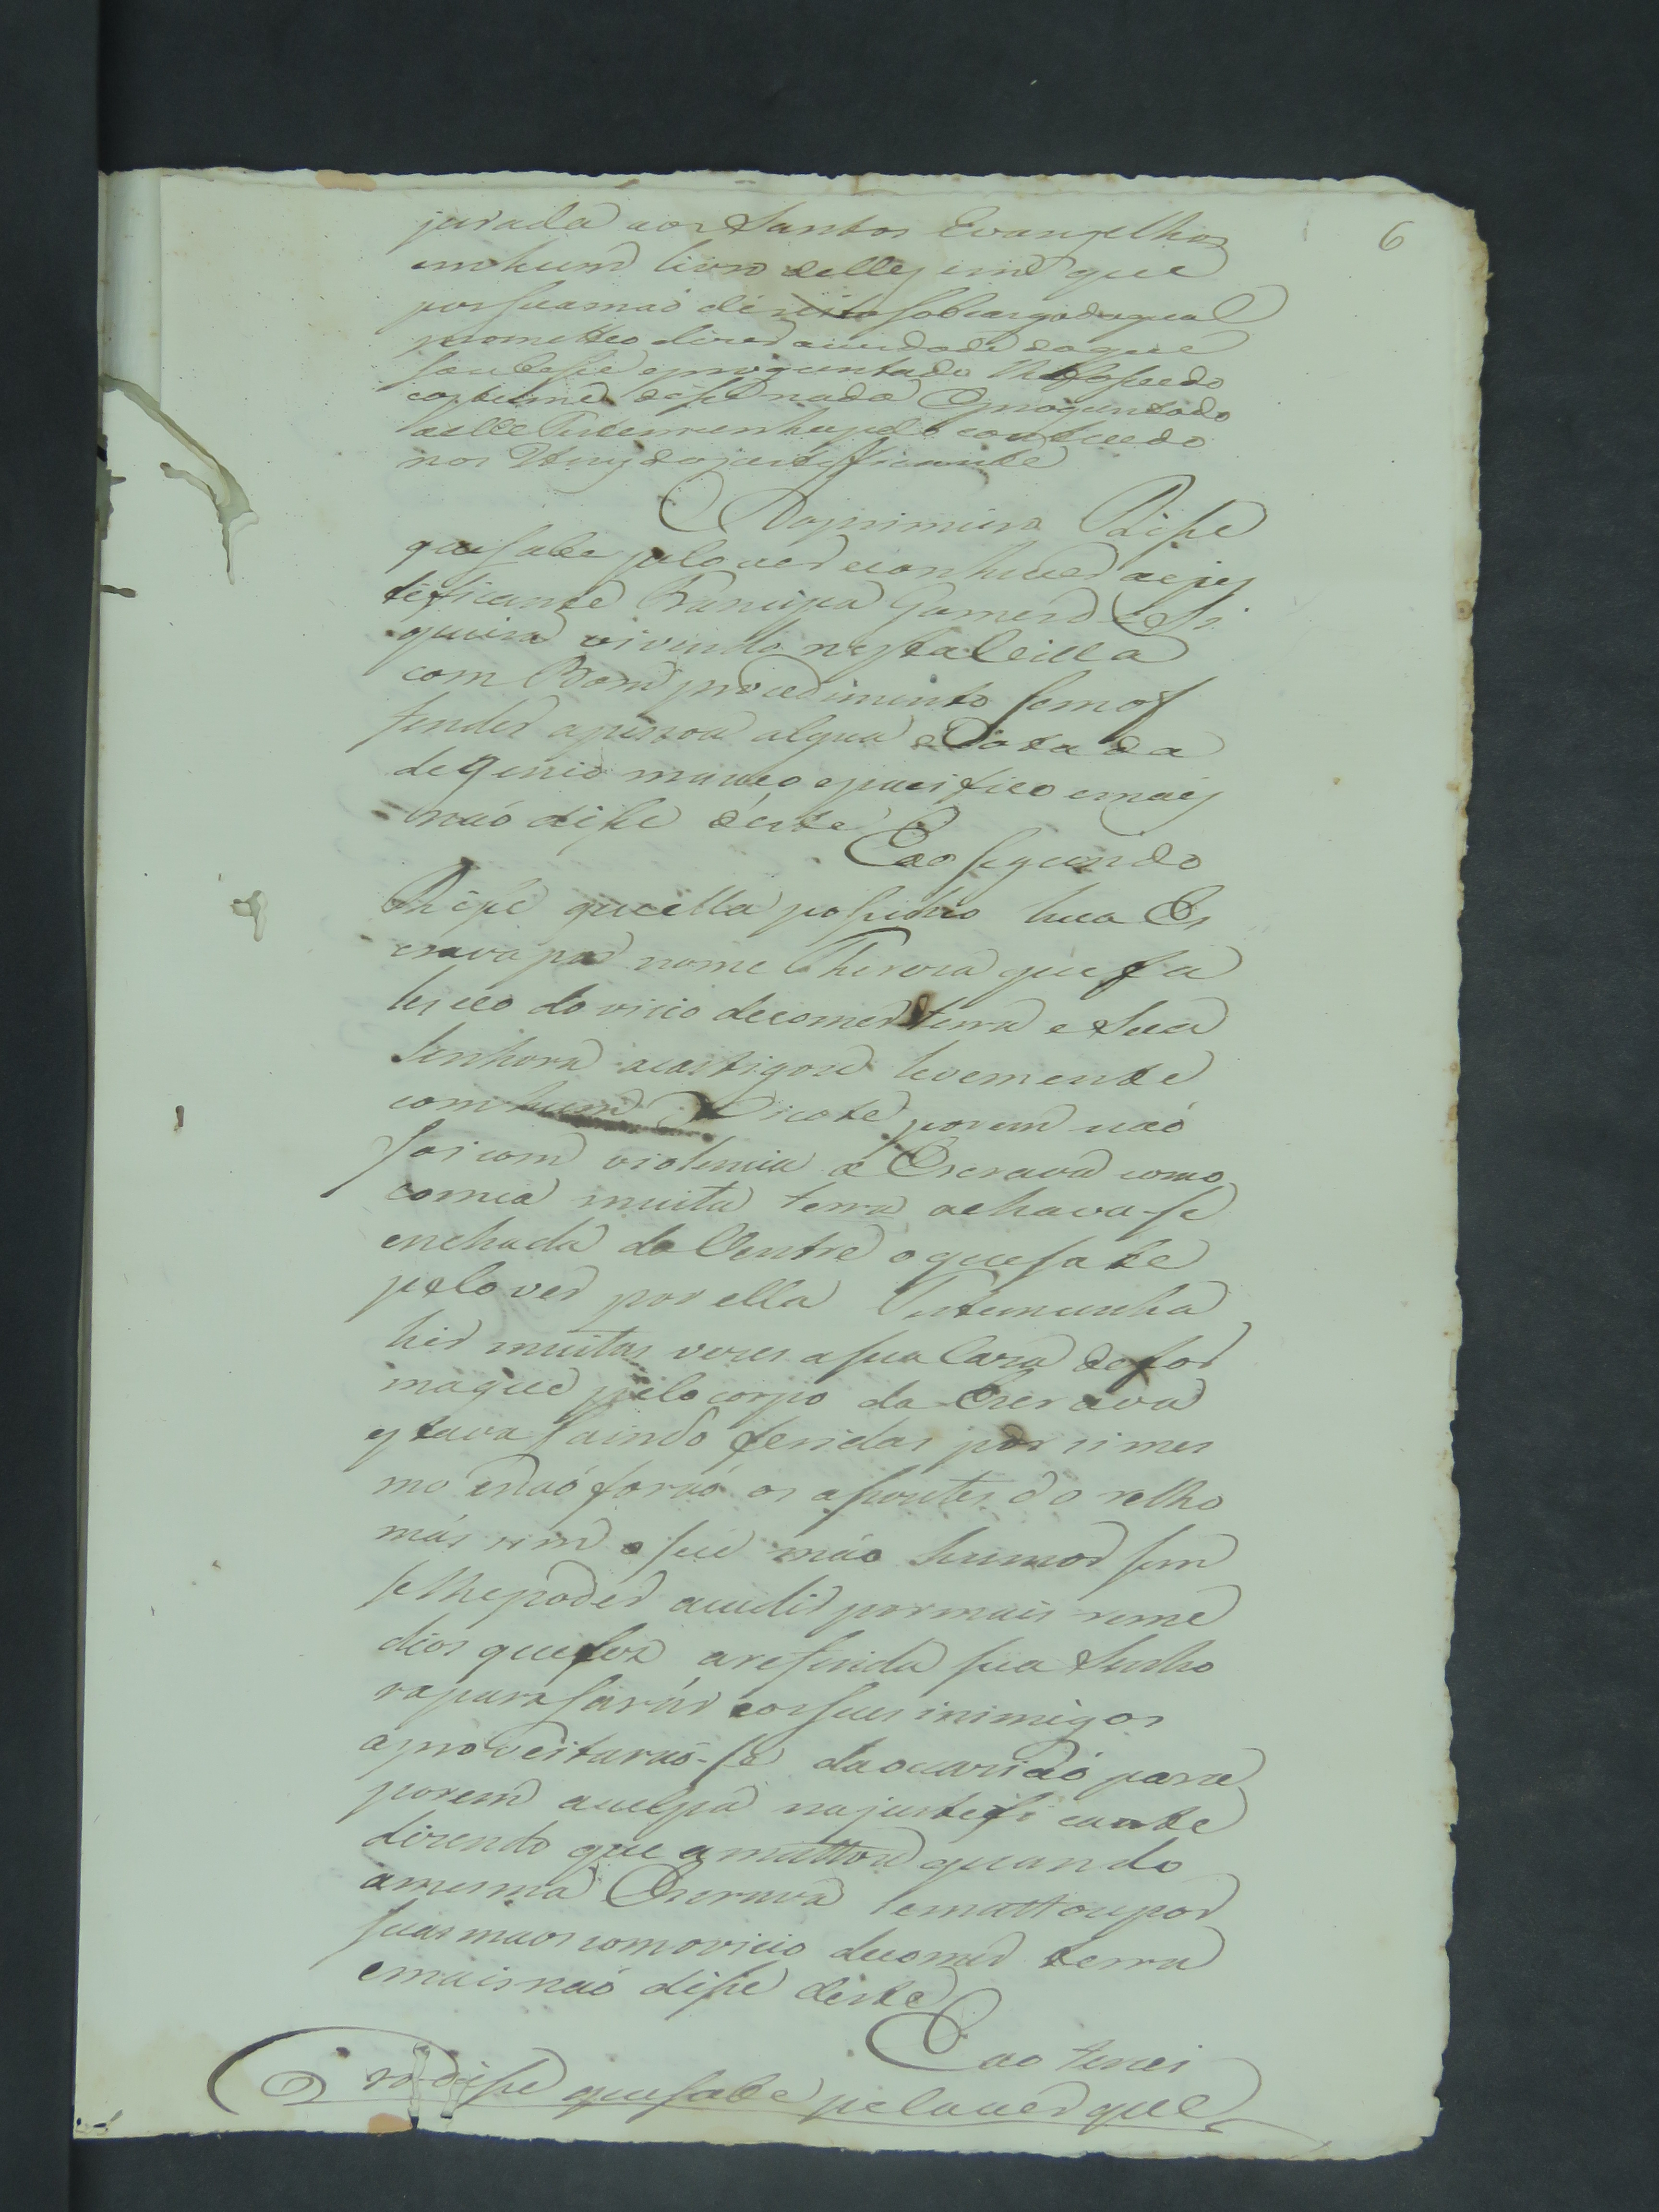 6
jurada aos Santos Evangelhos
em hum livro delles em que
pos sua maõ direita sob cargo do qual
prometteo dizer averdade do que
soubese eproguntado lhe fose edo
costume dise nada Eproguntado
aelle Testemunha pelo contheudo
nos Itens do justifficante
Aoprimeiro Dise
que sabe pelo ver econhecer aejus
tificante Gomes de Si
queira vivendo nesta Villa
com Bom procedimento sem of
fender apessoa algua e Dotada
de Genio manço epacifico emais
naõ dise deste
E ao segundo
Dise que ella posuhio hua Es
crava por nome Thereza que fa
leceo do vicio decomer terra e Sua
Senhora acastigou levemente
com hum Xicote porem naõ
foi com violencia a Escrava como
comia muita terra achava-se
enchada do Ventre oque sabe
pelo ver por ella Testemunha
hir muitas vezes asua Caza de for
maque pelo corpo da Escrava
estava saindo feridas por si mes
mo enaõ foraõ os asoutes do relho
mas sim o seu máo humor sem
selhe poder acudir por mais reme
dios que fez areferida sua Senho
ra para sarár eos seus inimigos
aproveitaraõ-se da ocaziaõ para
porem aculpa na justefi cante
dizendo que a mattou quando
amesma Escrava semattou por
suas maos com ovicio decomer terra
emais naõ dise deste
E ao tercei
ro dise que sabe pelo ver que